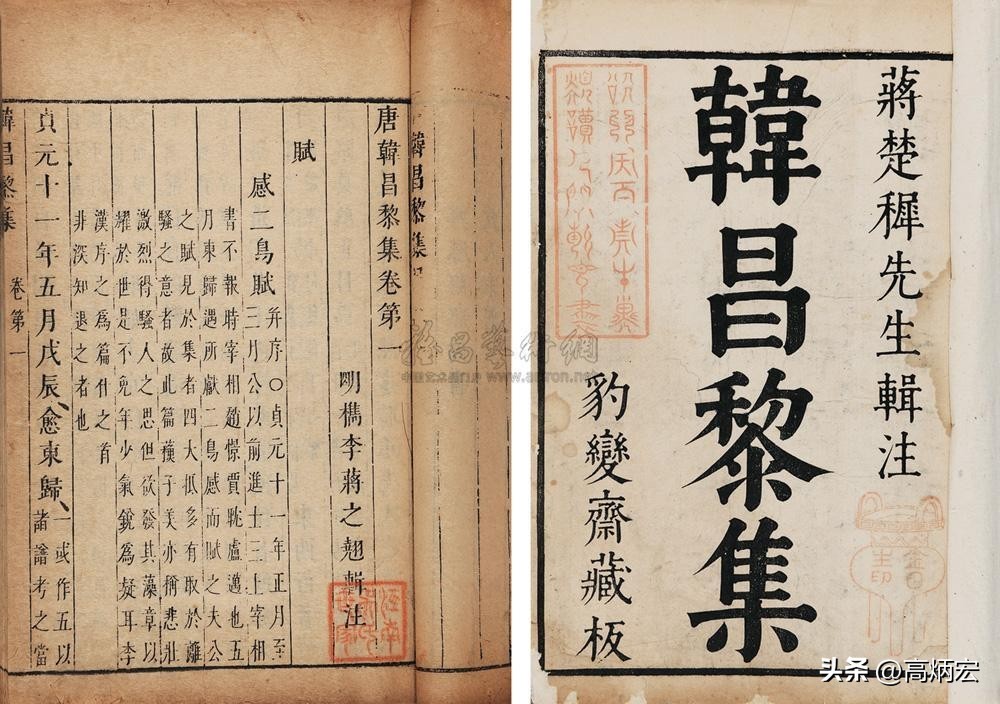 蔣楚穉先生輯注
韓昌黎集
豹變齋藏板
韓昌黎集
唐韓昌黎集卷第一
明檇李蔣之翹輯注
賦
感二鳥賦 并序○貞元十一年正月至
三月公以前進士三上宰相
書不報時宰相趙憬賈耽盧邁也五
月東歸遇所獻二鳥感而賦之夫公
之賦見於集者四大抵多有取於離
騷之意者故此篇蘓子美亦稱悲壯
激烈得騷人之思但欲發其藻章以
耀於世是不免年少氣銳爲疑耳李
漢序之爲篇什之首
非深知退之者也
貞元十一年五月戊辰、愈東歸、一或作五以
諸論考之當
韓昌黎集 卷第一
www.artron.net
头条 @高炳宏